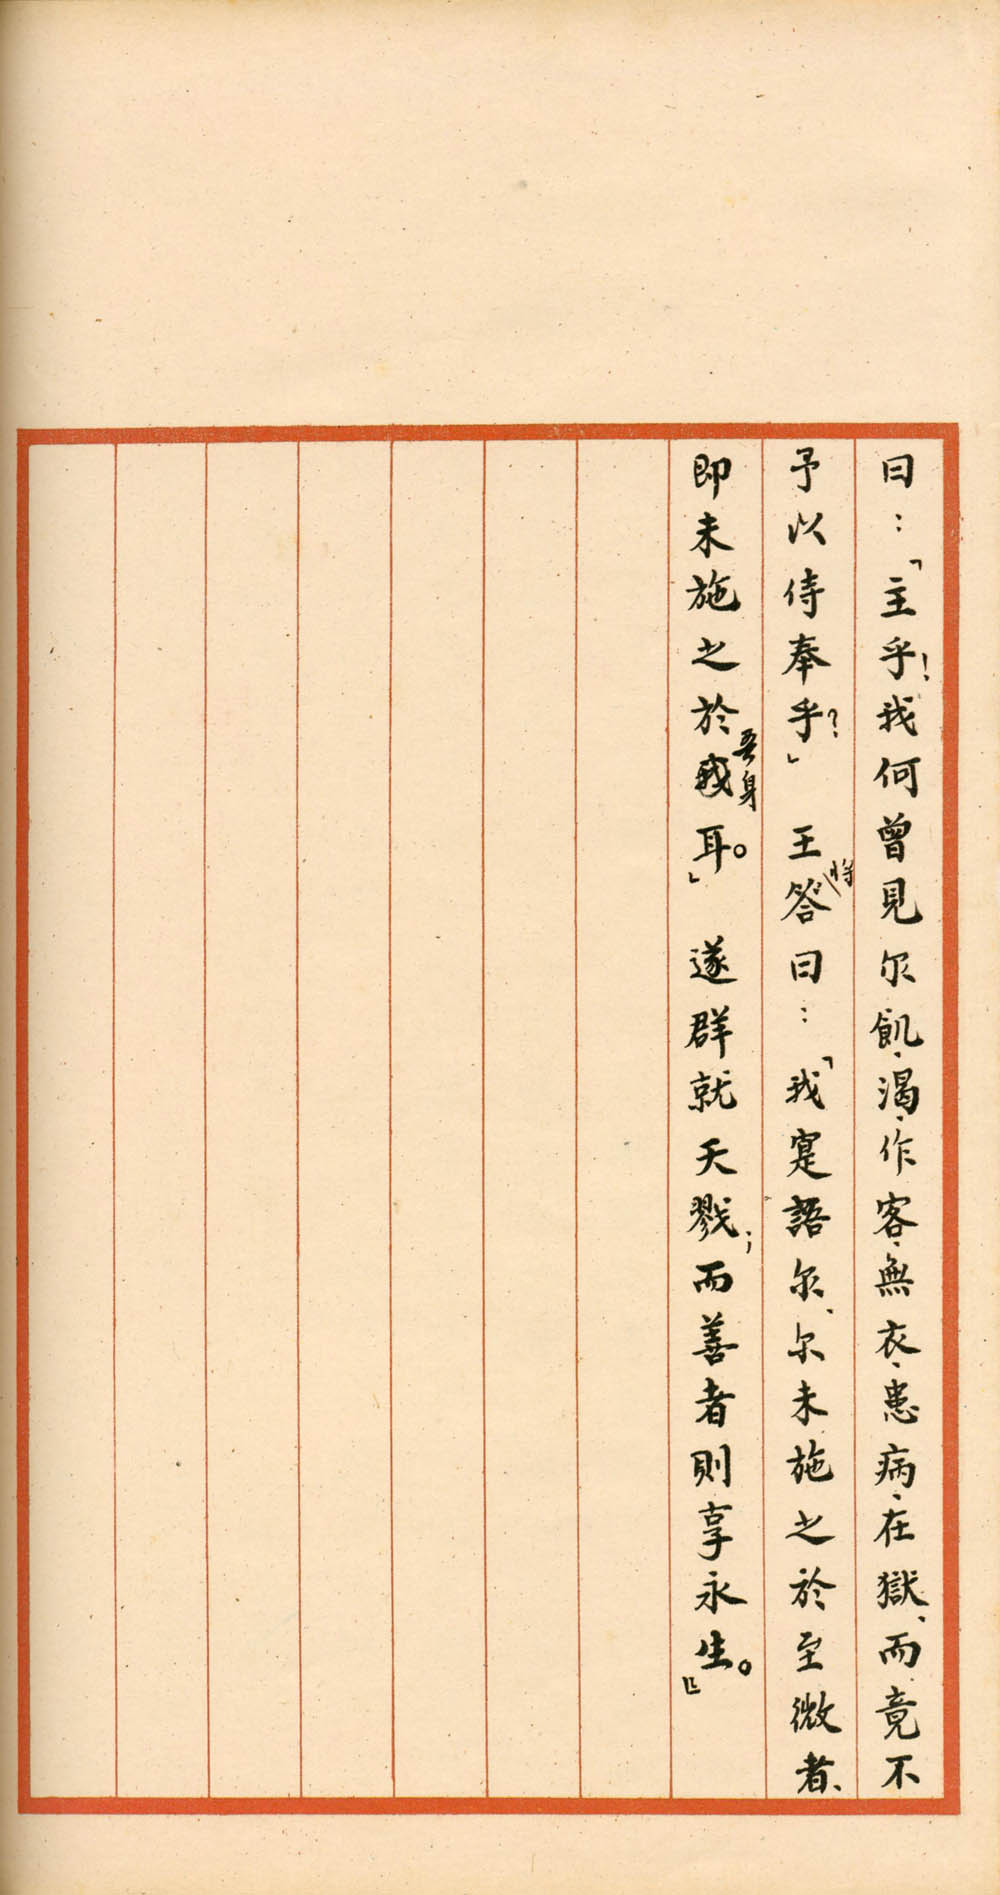 曰：「主乎！我何曾見尔飢、渴、作客、無衣、患病、在獄、而竟不
予以侍奉乎？」王將答曰：「我寔語尔、尔未施之於至微者、
即未施之於吾身耳。」遂群就夭戮；而善者則享永生。』